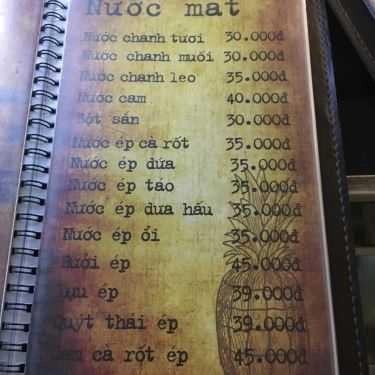 Nước mát
Nước chanh tươi 30.000đ
Nước chanh muối 30.000đ
Nước chanh leo 35.000đ
Nước cam 40.000đ
Bột sắn 30.000đ
Nước ép cà rốt 35.000đ
Nước ép dứa 35.000đ
Nước ép táo 35.000đ
Nước ép dưa hấu 35.000đ
Nước ép ổi 35.000đ
Bưởi ép 45.000đ
Lựu ép 39.000đ
Quýt thái ép 39.000đ
Cam cà rốt ép 45.000đ